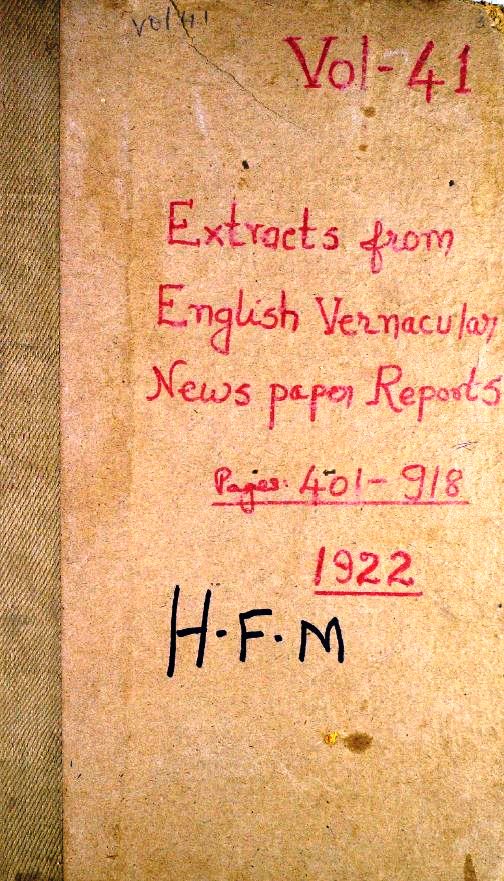 Vol 41
Vol-41
Extracts from
English Vernacular
News paper Reports
Pages: 401-918
1922
H.F.M